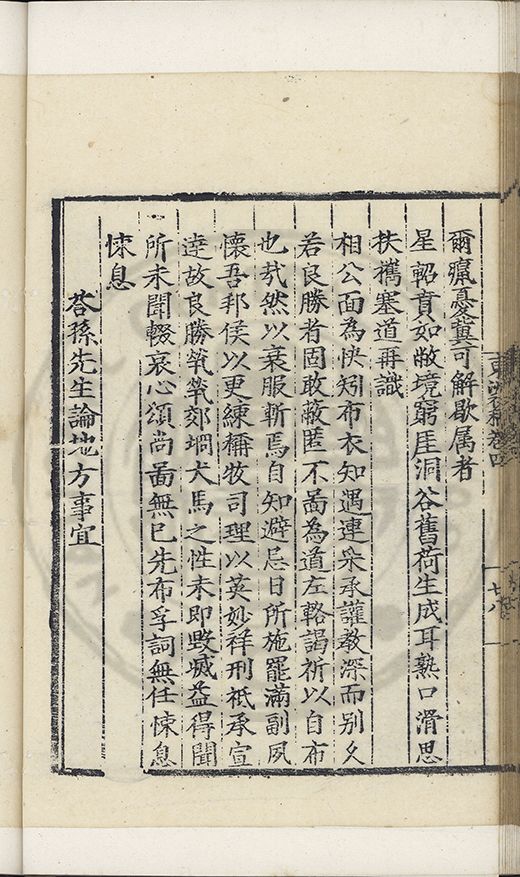 爾癙憂冀可解歇属者
星軺賁如敝境窮厓洞谷舊荷生成耳熟口滑思
扶攜塞道再識
相公面為快矧布衣知遇連宋承讙教深而别久
若良勝者固敢蔽匿不啚為道左輅謁祈以自布
也㢤然以衰服斬焉自知避忌日所施罷滿副夙
懷吾邦侯以更練稱牧司理以英妙祥刑祇承宣
逹故良勝煢煢郊坰犬馬之性未即毀烕益得聞
所未聞輟哀心頌尚啚無已先布孚詞無任悚息
悚息
荅孫先生論地方事宜
卷四